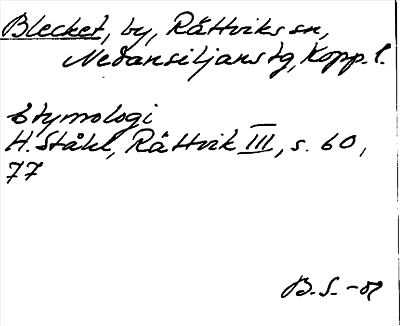 Blecket, by, Rättviks sn,
Nedansiljans tg, Kopp. l.
Etymologi
H. Ståhl, Rättvik III, s. 60,
77
B.S. -81